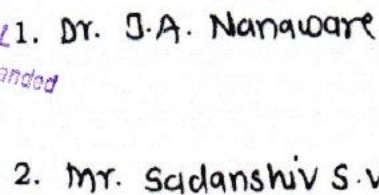 1. Dr. J.A. Nanaware
anded
2. Mr. Sadanshiv S.V